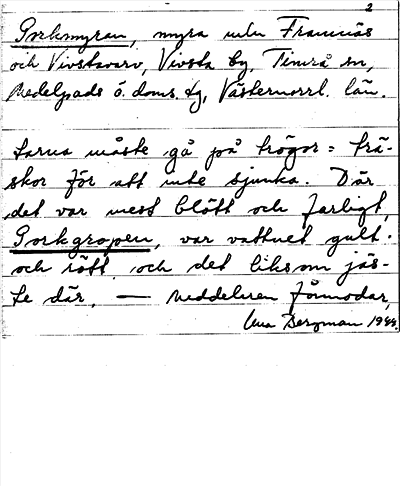 2
Porkmyran, myra mln Framnäs
och Vivstavarv, Vivsta by, Timrå sn,
Medelpads ö. doms. tg, Västernorrl. län.
tarna måste gå på trögor = trä-
skor för att inte sjunka. Där
det var mest blött och farligt,
Porkgropen, var vattnet gult
och rött och det liksom jäs-
te där. — Meddelaren förmodar,
Bergman 1944.